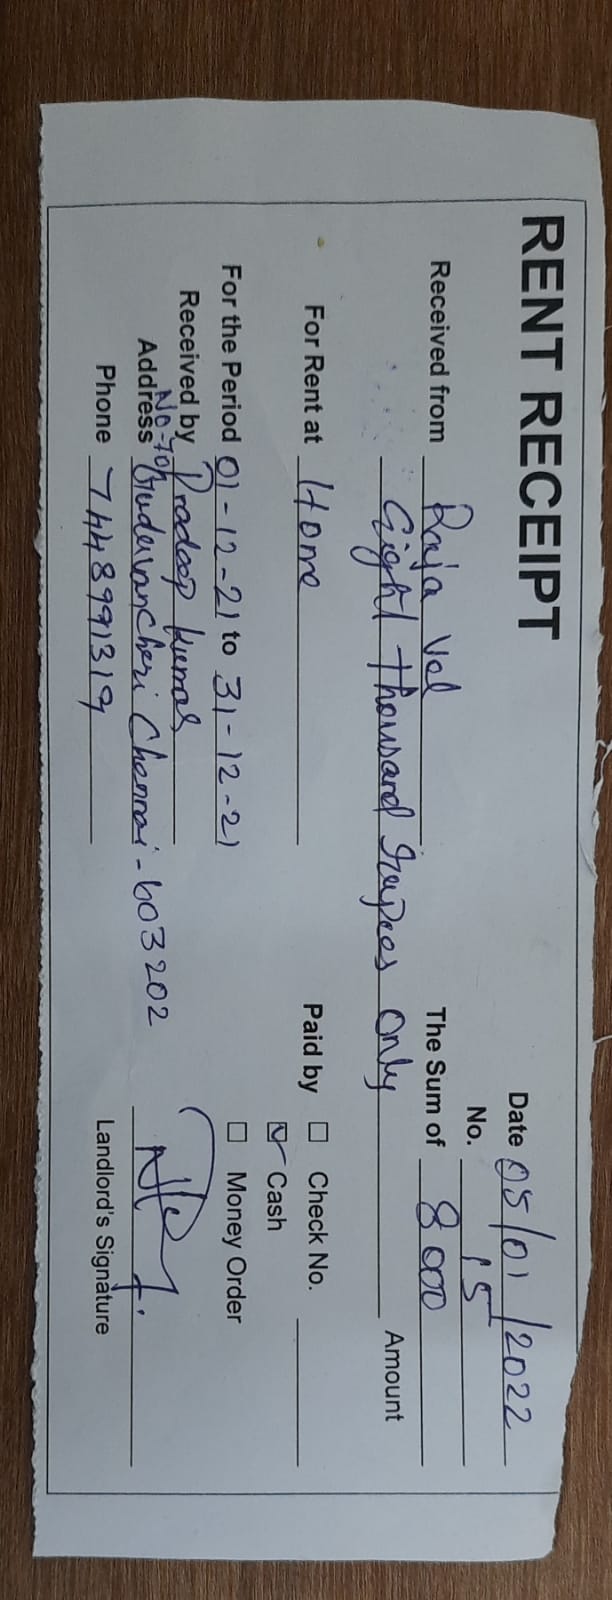 RENT RECEIPT
Date 05/01/2022
No. 15
Received from Raja Vel The Sum of 8000
Eight thousand rupees only Amount
For Rent at Home Paid by ☐ Check No.
☑ Cash
For the Period 01-12-21 to 31-12-21 ☐ Money Order
Received by Pradeep kumar
Address No-70A Guduvancheri Chennai-603202
Phone 7448991319 Landlord's Signature